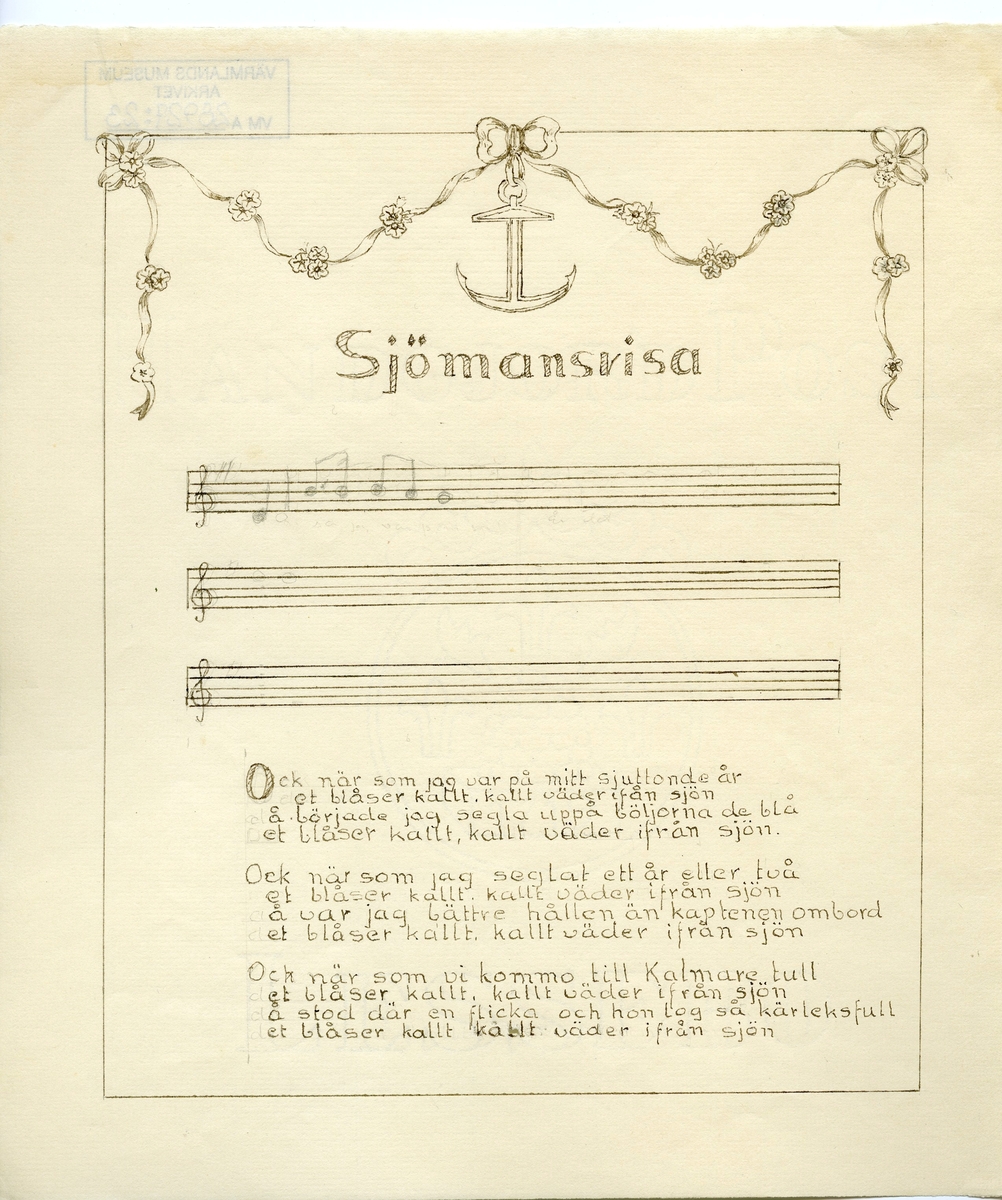 VÄRMLANDS MUSEUM
ARKIVET
VM A
Sjömansvisa
Ock när som jag var på mitt sjuttonde år
det blåser kallt, kallt väder ifrån sjön
då började jag segla uppå böljorna de blå
det blåser kallt, kallt väder ifrån sjön.
Ock när som jag seglat ett år eller två
det blåser kallt, kallt väder ifrån sjön
då var jag bättre hållen än kaptenen ombord
det blåser kallt, kallt väder ifrån sjön
Och när som vi kommo till Kalmare tull
det blåser kallt, kallt väder ifrån sjön
då stod där en flicka och hon log så kärleksfull
det blåser kallt kallt väder ifrån sjön